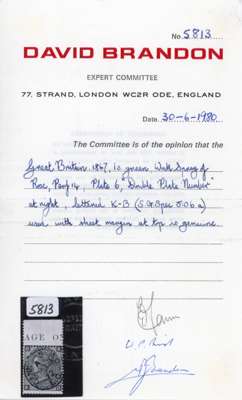 No. 5813
DAVID BRANDON
EXPERT COMMITTEE
77, STRAND, LONDON WC2R ODE, ENGLAND
Date 30-6-1980
The Committee is of the opinion that the
Great Britain 1867, 1s green, Wmk Spray of
Rose, Perf 14, Plate 6, "Double Plate Number"
at right, lettered K-B (S.G. Spec
used with sheet margin at top is genuine
5813
AGE O
Brandon